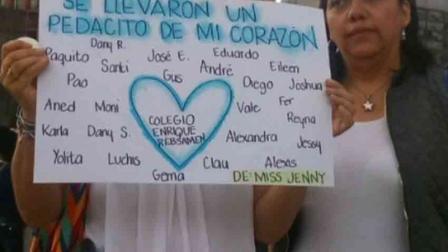 SE LLEVARON UN
PEDACITO DE MI CORAZÓN
Dany R.
José E.
Eduardo
Paquito
Santi
Gus
André
Eileen
Pao
Diego
Joshua
Aned
Moni
COLEGIO
ENRIQUE
REBSAMEN
Vale
Fer
Reyna
Karla
Dany S.
Alexandra
Jessy
Yolita
Luchis
Gema
Clau
Alexis
DE: MISS JENNY